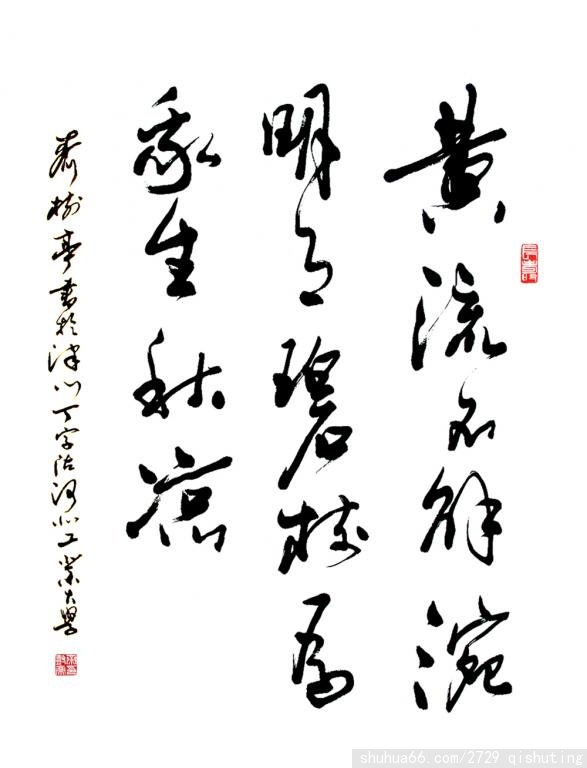 黄流不解涴
明月碧树為
我生秋凉
齐树亭書於津门丁字沽河北工業大學
shuhua66.com/2729 qishuting